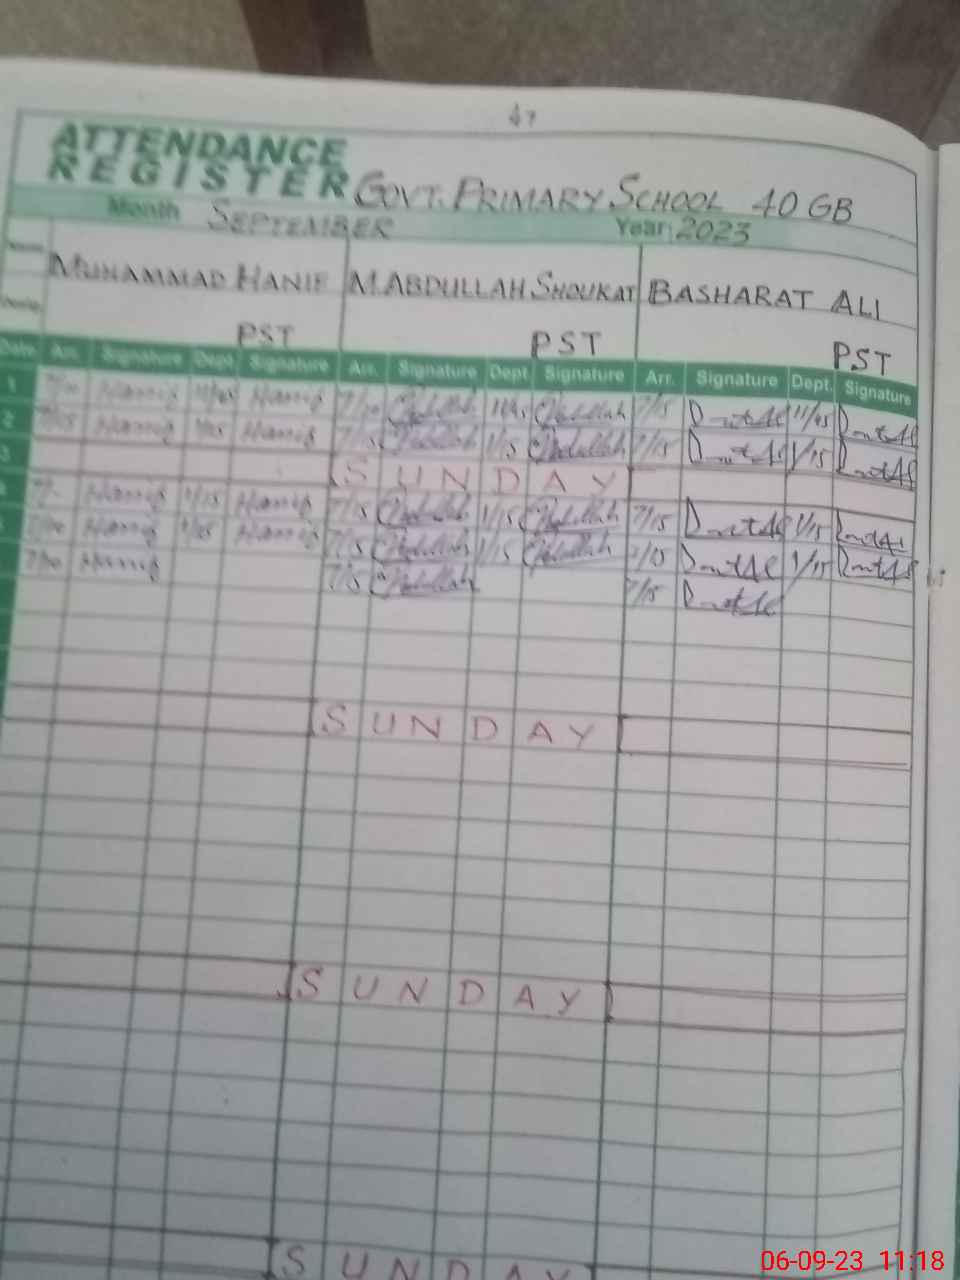 47
ATTENDANCE
REGISTER GOVT. PRIMARY SCHOOL 40 GB
Month SEPTEMBER Year: 2023
MUHAMMAD HANIF M.ABDULLAH SHOUKAT BASHARAT ALI
PST PST PST
Date Arr. Signature Dept. Signature Arr. Signature Dept. Signature Arr. Signature Dept. Signature
1 Hanif Hanif Abdullah Abdullah 7/15 11/45
2 Hanif Hanif 7/15 Abdullah 1/15 Abdullah 7/15 1/15
3 SUNDAY
Hanif 1/15 Hanif 7/15 Abdullah 1/15 Abdullah 7/15 1/15
Hanif Hanif 7/15 Abdullah 1/15 Abdullah 1/15
Hanif 7/15 Abdullah 7/15
SUNDAY
SUNDAY
SUNDAY
06-09-23 11:18